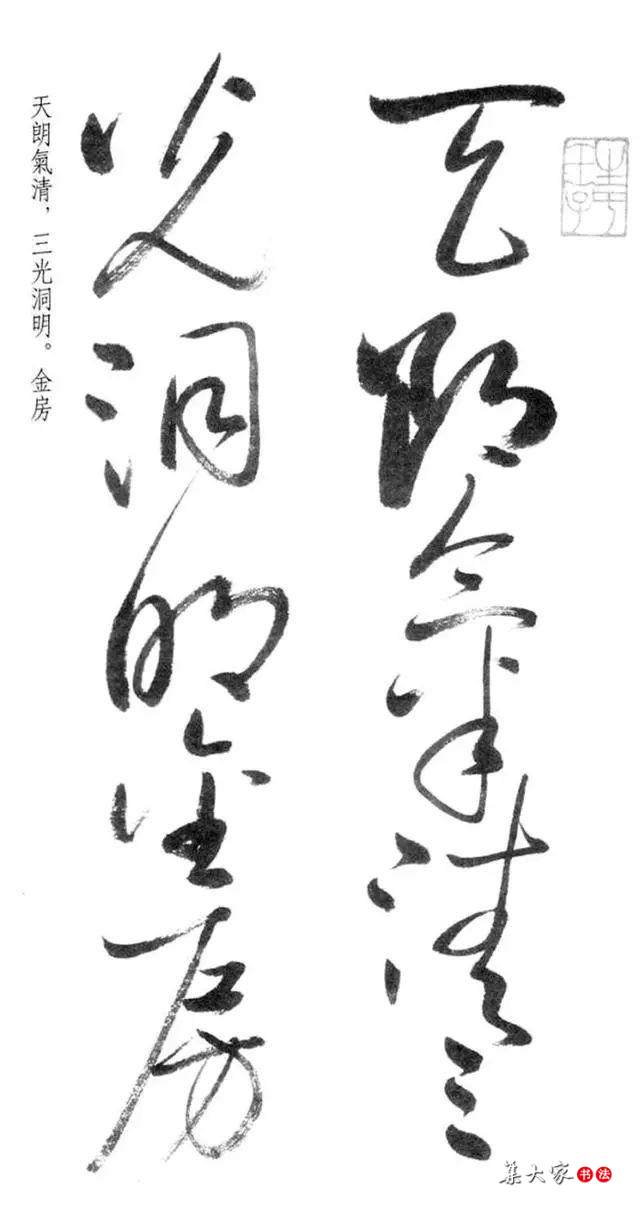 天朗氣清三
光洞明金房
天朗氣清，三光洞明。金房
集大家书法